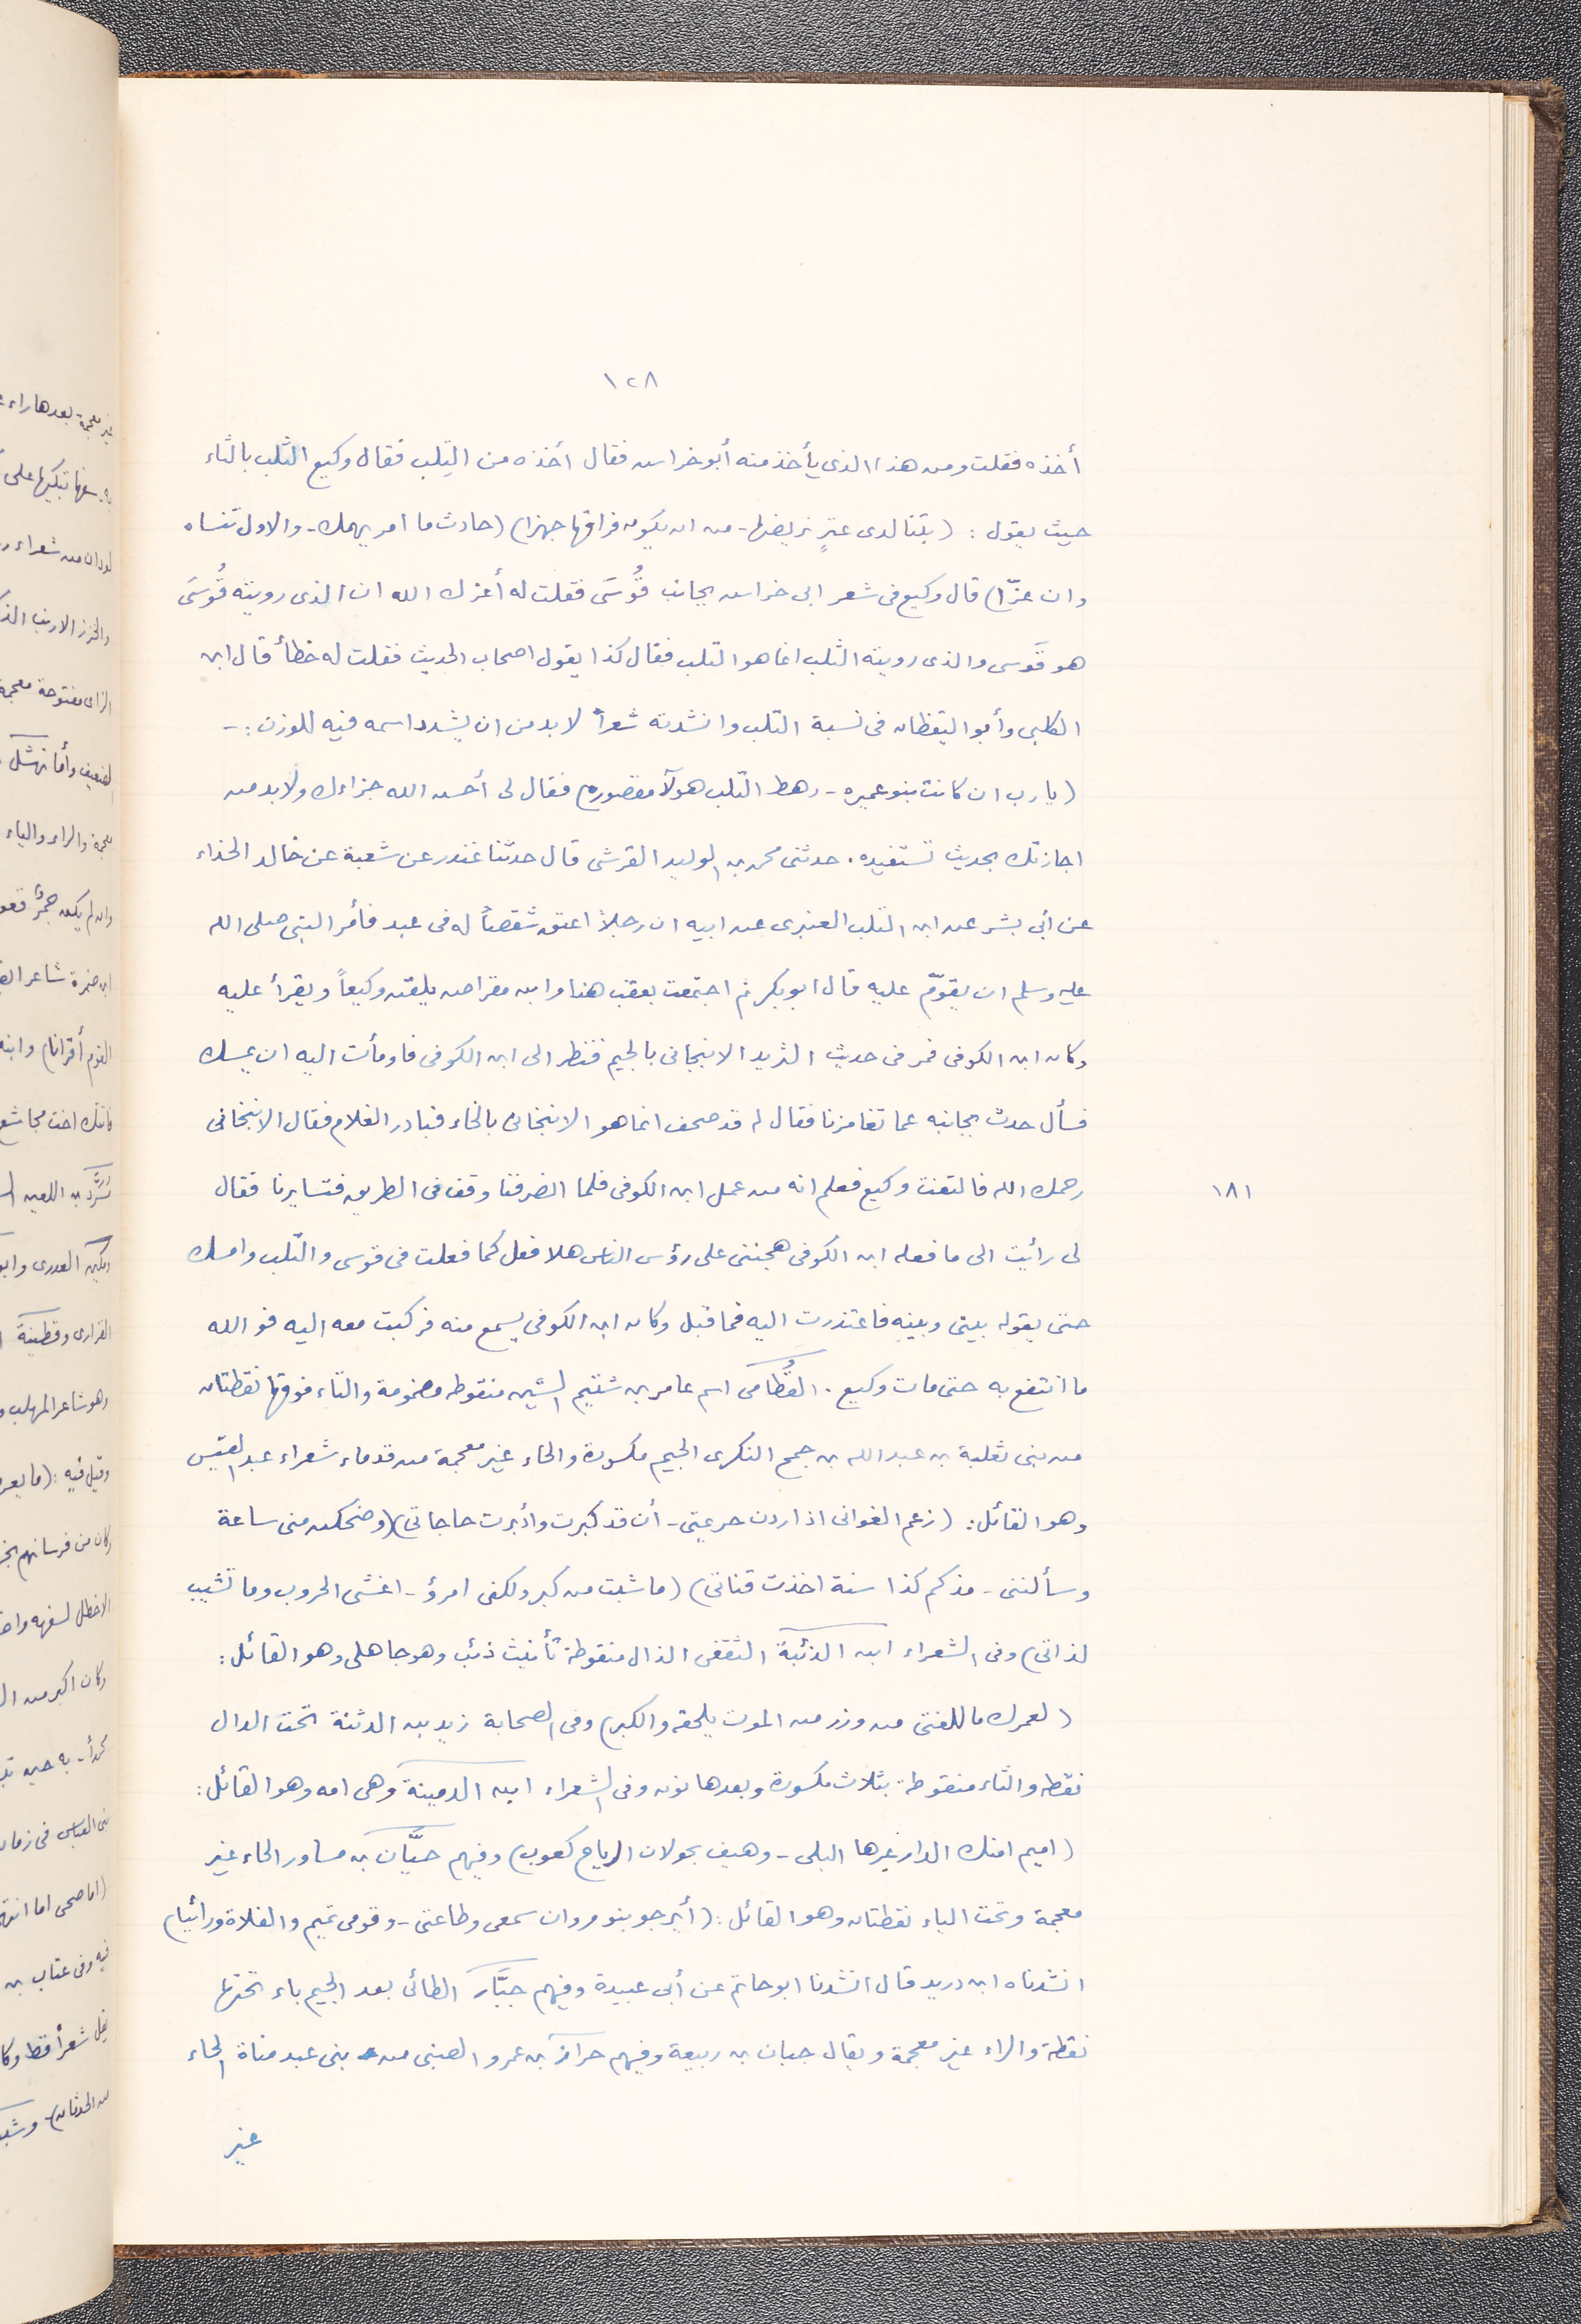 ١٢٨
أخذه فقلت ومن هذا الذى يأخذ منه أبو خراش فقال أخذه من التلب فقال وكيع الثلب بالثاء
حيث يقول : (بتنا لدى عنز نريضها - من ان يكون فراقها جهزا) (حادث ما امر يهمك - والاول تنساه
وان عزّا) قال وكيع فى شعر ابى خراش بجانب قُوسَى فقلت له أعزك الله ان الذى رويته قُوسَى
هو قَوسى والذى رويته الثلب انما هو التلب فقال كذا يقول اصحاب الحديث فقلت له خطأ قال ابن
الكلبى وأبو اليقظان فى نسبة التلب وانشدته شعراً لا بد من ان يشدد اسمه فيه للوزن : -
(يا رب ان كانت بنو عميره - رهط التلب هولآ مقصوره) فقال لى أحسن الله جزاءك ولا بد من
اجازتك بحديث تستفيده . حدثنى محمد بن الوليد القرشى قال حدثنا غندر عن شعبة عن خالد الحذاء
عن أبى بشر عن ابن التلب العنبرى عن ابيه ان رجلاً اعتق شقصاً له فى عبد فأمر النبى صلى الله
عليه وسلم ان يقوّم عليه قال ابو بكر ثم اجتمعت بعقب هذا وابن مقراض يلقن وكيعاً ويقرأ عليه
وكان ابن الكوفى فمر فى حديث الثريد الانبجانى بالجيم فنظر الى ابن الكوفى فاومأت اليه ان يمسك
فسأل حدث بجانبه عما تغامزنا فقال له قد صحف انما هو الانبخانى بالخاء فبادر الغلام فقال الانبخانى
رحمك الله فالتفت وكيع فعلم انه من عمل ابن الكوفى فلما انصرفنا وقف فى الطريق فتسايرنا فقال
١٨١
لى رأيت الى ما فعله ابن الكوفى هجننى على رؤس الناس هلا فعل كما فعلت فى قوسى والتّلب وامسك
حتى يقوله بينى وبينه فاعتذرت اليه فما قبل وكان ابن الكوفى يسمع منه فركبت معه اليه فو الله
ما انتفع به حتى مات وكيع . القُطامى اسم عامر بن شتيم الشين منقوطه مضمومة والتاء فوقها نقطتان
من بنى ثعلبة بن عبد الله بن جمح النكرى الجيم مكسورة والحاء غير معجمة من قدماء شعراء عبد القيس
وهو القائل : (زعم الغوانى اذا اردن صرعتى - أن قد كبرت وأدبرت حاجاتى) (وضحكن منى ساعة
وسألننى - مذ كم كذا سنة اخذت قناتى) (ما شبت من كبر ولكنى امرؤ - اغشى الحروب وما تشيب
لداتى) وفى الشعراء ابن الذئبة الثقفى الذال منقوطة تأنيث ذئب وهو جاهلى وهو القائل :
(لعمرك ما للفتى من وزر من الموت يلحقه والكبر) وفى الصحابة زيد بن الدثنة تحت الدال
نقطه والثاء منقوطة بثلاث مكسورة وبعدها نون وفى الشعراء ابن الدمينة وهى امه وهو القائل :
(اميم امنك الدار غيرها البلى - وهيف بجولان الرياح كعوب) وفيهم حيَّان بن مساور الحاء غير
معجمة وتحت الياء نقطتان وهو القائل : (أيرجو بنو مروان سمعى وطاعتى - وقومى تميم والفلاة ورائيا)
انشدناه ابن دريد قال انشدنا ابو حاتم عن أبى عبيدة وفيهم جبَّار الطائى بعد الجيم باء تحتها
نقطة والراء غير معجمة ويقال جبان بن ربيعة وفيهم حراز بن عمرو الضبى من بنى عبد مناة الحاء
غير